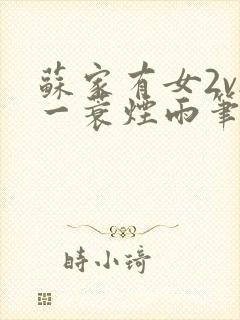 蘇家有女2v
一蓑煙雨筆
時小琦